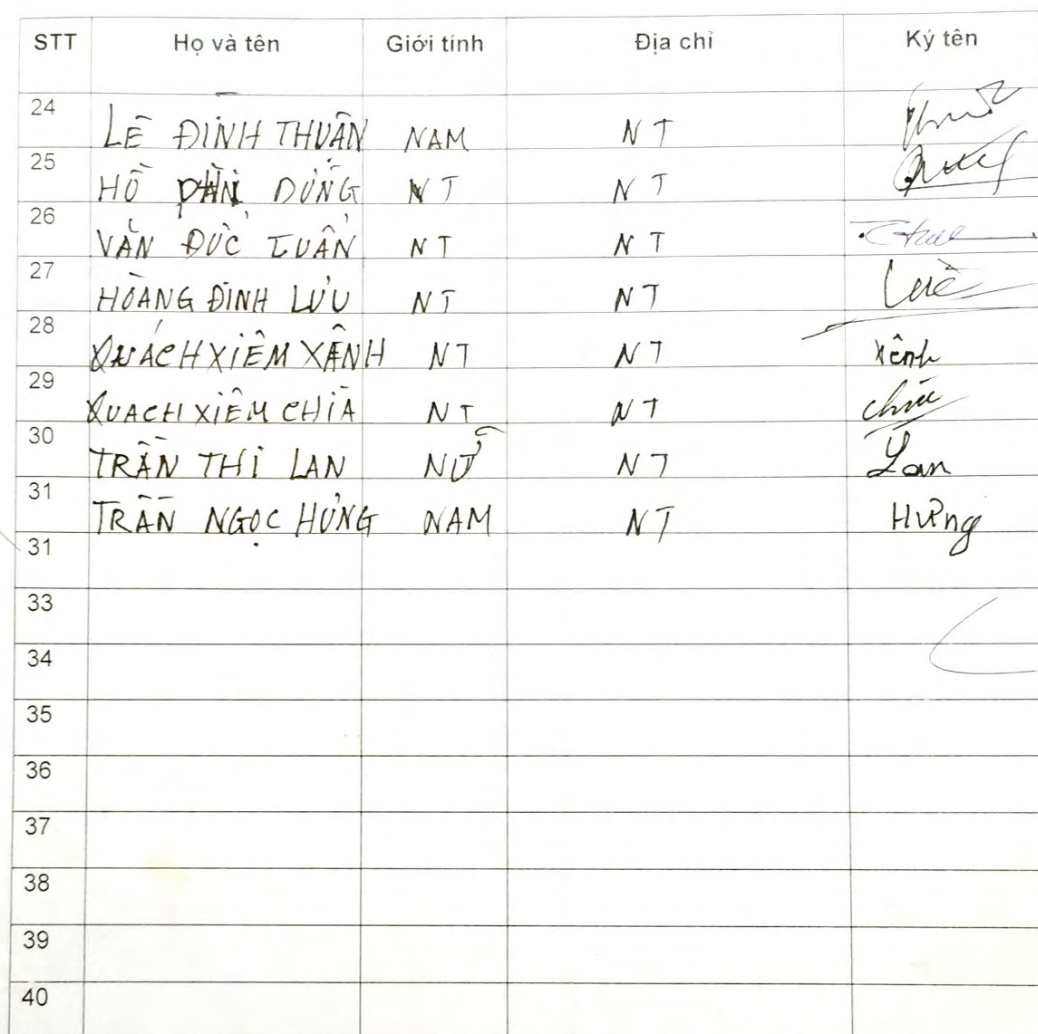 STT Họ và tên Giới tính Địa chỉ Ký tên
24 LÊ ĐÌNH THUẬN NAM NT
25 HỒ DŨNG NT NT
26 VĂN ĐỨC TUẤN NT NT
27 HOÀNG ĐÌNH LƯU NT NT
28 QUÁCH XIÊM XÊNH NT NT xênh
29 QUACH XIÊM CHÍA NT NT
30 TRẦN THỊ LAN NỮ NT Lan
31 TRẦN NGỌC HƯNG NAM NT Hưng
31
33
34
35
36
37
38
39
40